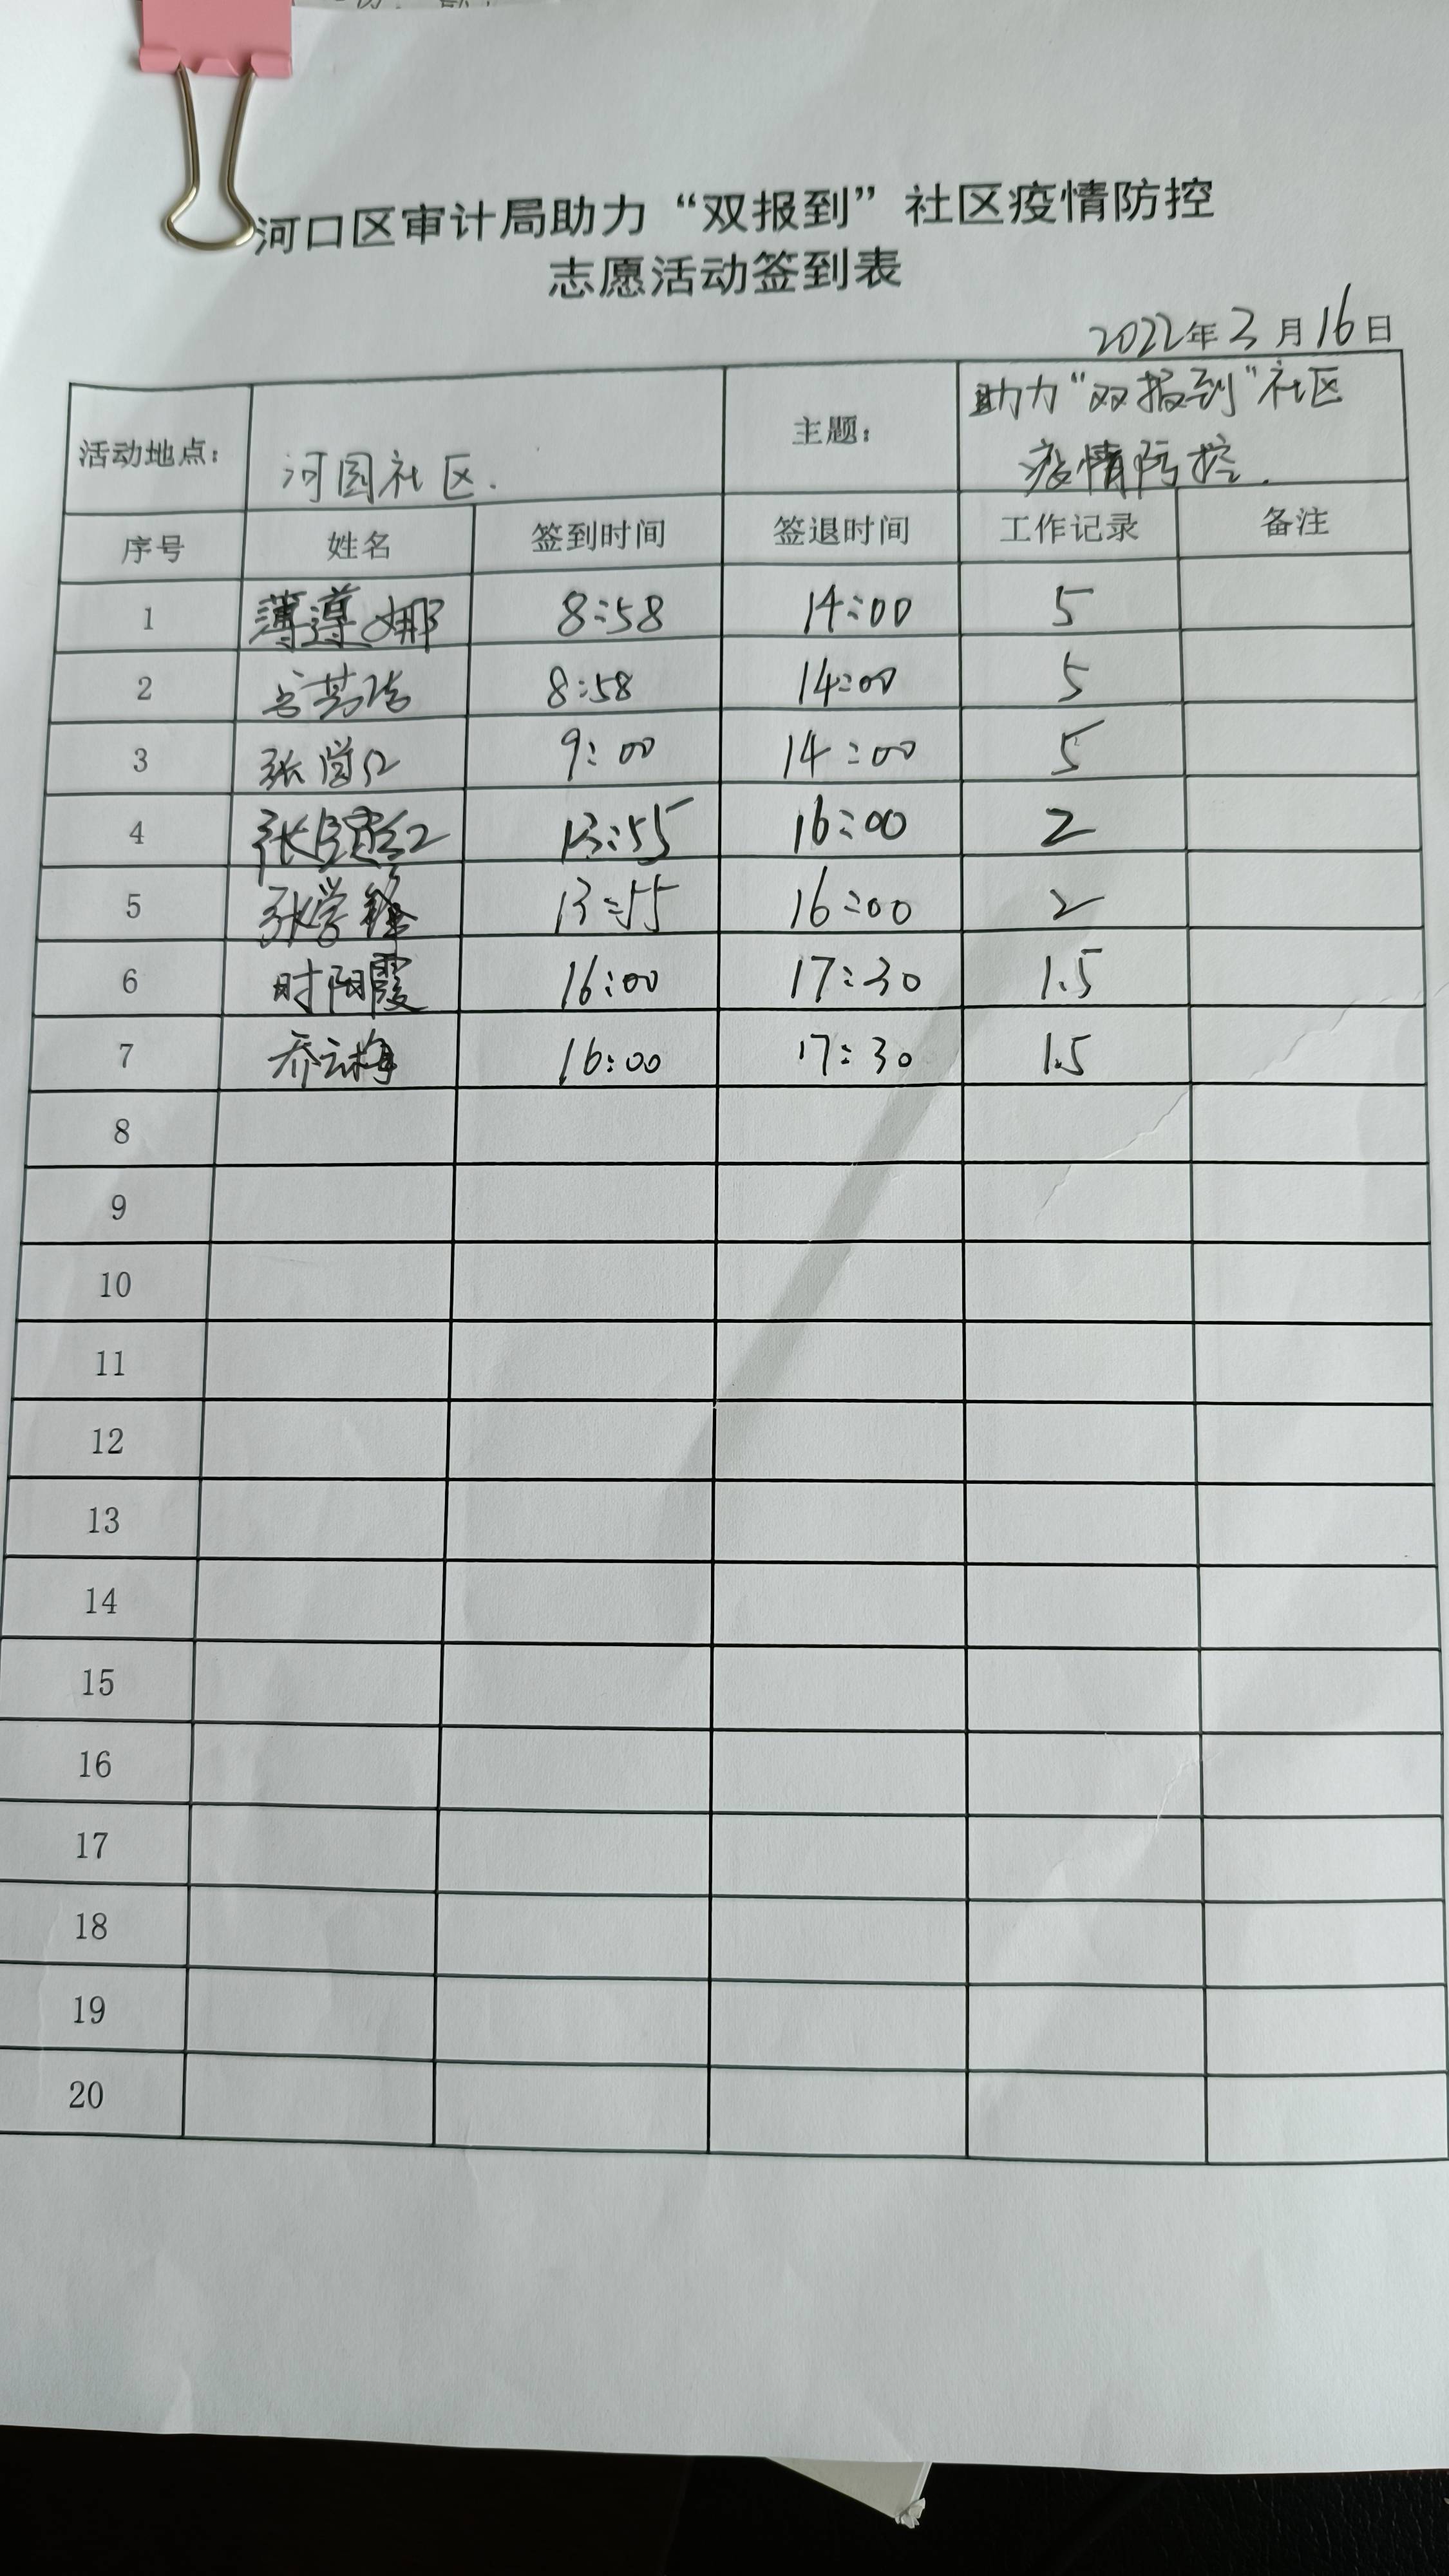 河口区审计局助力“双报到”社区疫情防控
志愿活动签到表
2022年3月16日
活动地点: 河园社区. 主题: 助力“双报到”社区
疫情防控.
序号 姓名 签到时间 签退时间 工作记录 备注
1 薄遵娜 8:58 14:00 5
2 8:58 14:00 5
3 9:00 14:00 5
4 13:55 16:00 2
5 张学锋 13:55 16:00 2
6 时阳霞 16:00 17:30 1.5
7 乔云梅 16:00 17:30 1.5
8
9
10
11
12
13
14
15
16
17
18
19
20